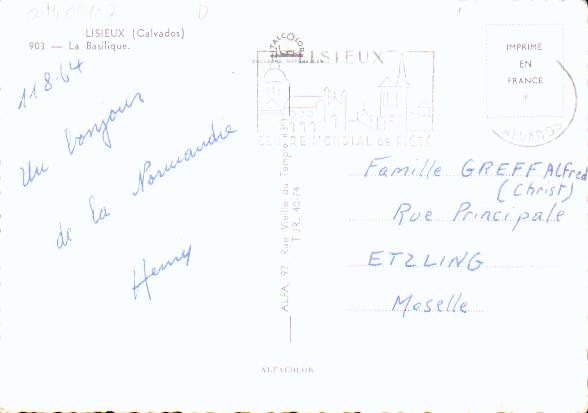 LISIEUX (Calvados)
903 — La Basilique.
11.8.64
Un bonjour
de la Normandie
Henry
COULEURS NATURELLES
ALFA, 97 Rue Vieille du Temple
TUR. 40-74
ALFACOLOR
LISIEUX
CENTRE MONDIAL DE
IMPRIMÉ
EN
FRANCE
CALVADOS
Famille GREFF Alfred
(Christ)
Rue Principale
ETZLING
Moselle